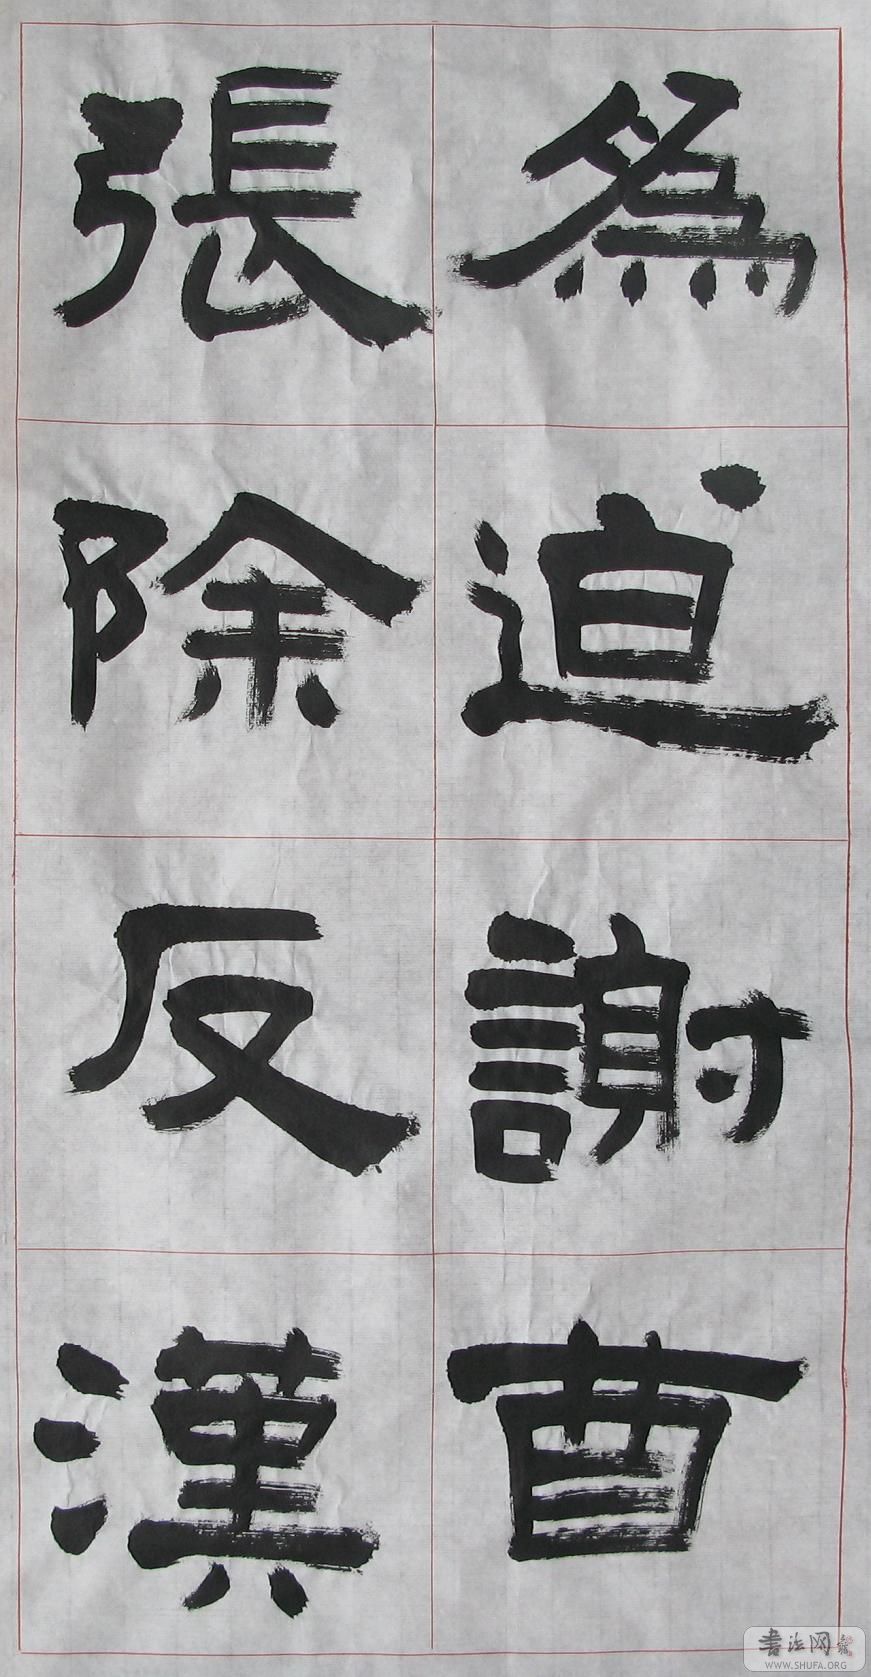 為迫謝酉
張除反漢
書法网
WWW.SHUFA.ORG